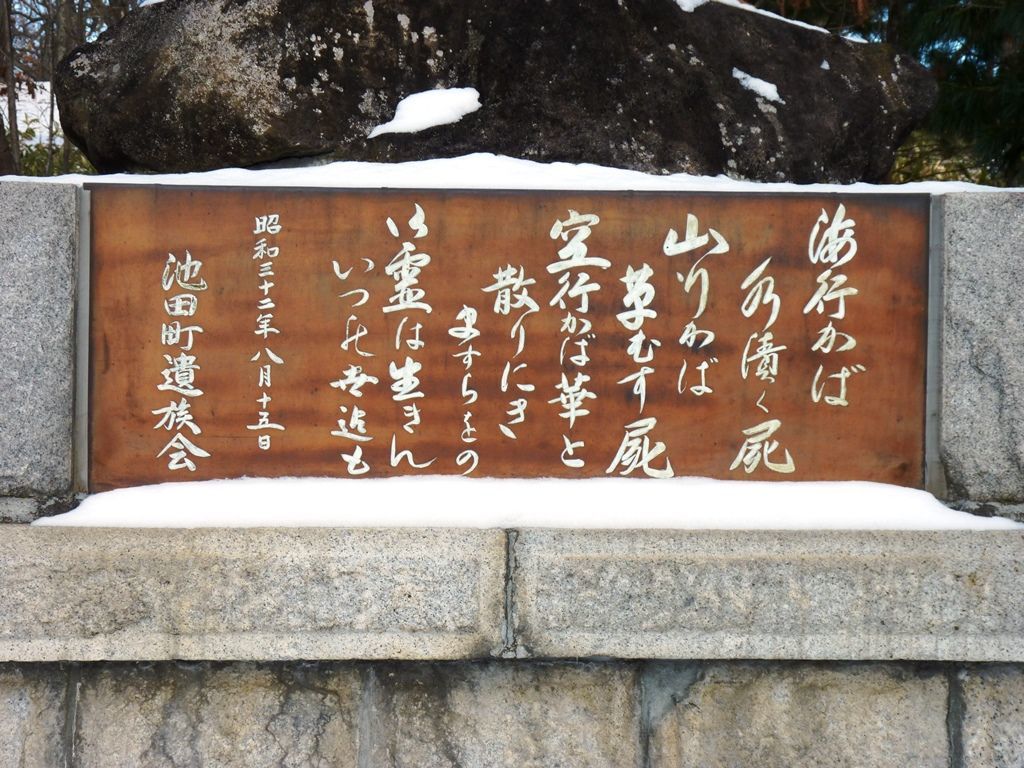 海行かば
水漬く屍
山行かば
草むす屍
空行かば華と
散りにき
ますらをの
み霊は生きん
いつの世迄も
昭和三十二年八月十五日
池田町遺族会